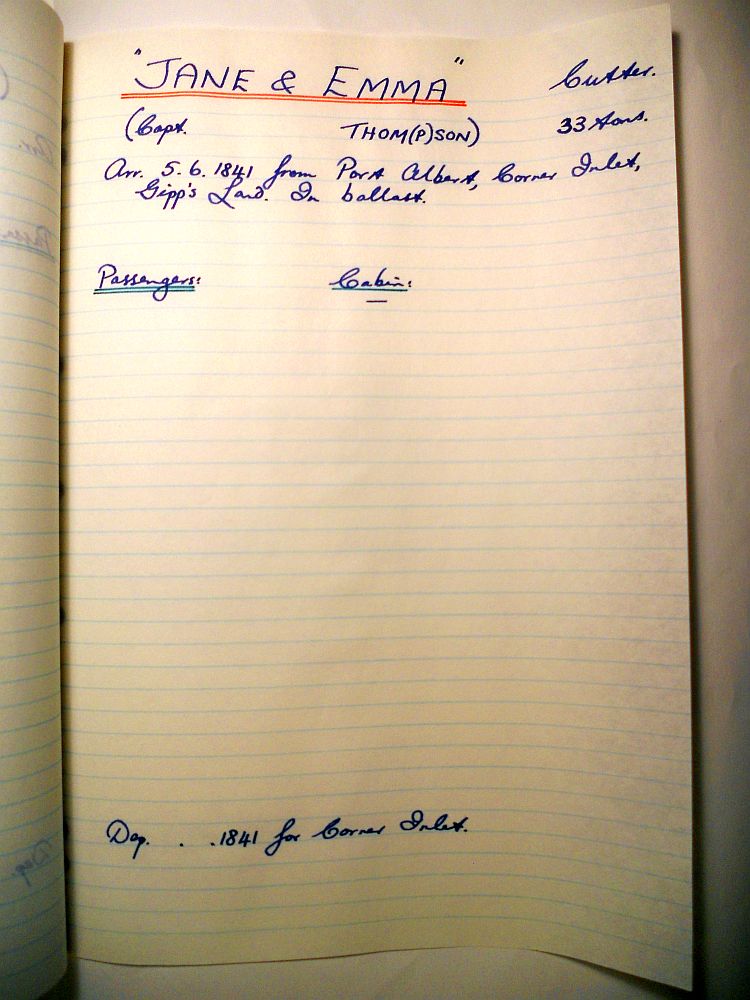 "JANE & EMMA" Cutter.
(Capt. THOM(P)SON) 33 tons.
Arr. 5.6.1841 from Port Albert, Corner Inlet,
Gipp's Land. In ballast.
Passengers: Cabin:
—
Dep. . .1841 for Corner Inlet.